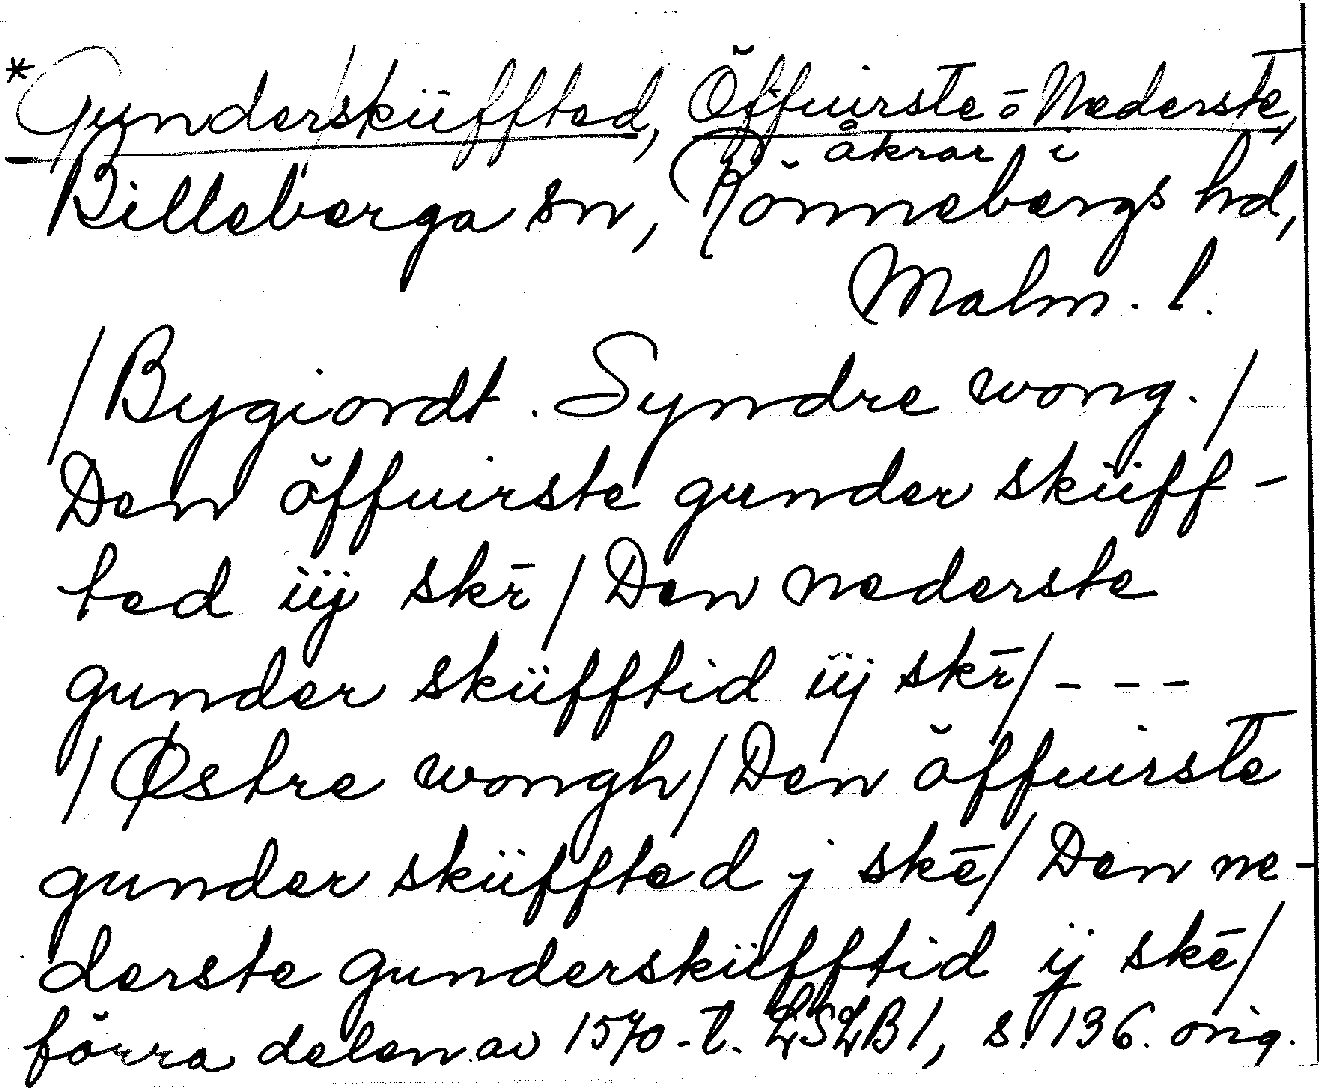 *Gundersküffted, Öffuirste - o Nederste,
åkrar i
Billeberga sn, Rönnebergs hd,
Malm. l.
/Bygiordt. Syndre wong./
Den öffuirste gunder sküff-
ted iij skr̄/Den nederste
gunder sküfftid iij skr̄/---
/Østre wongh/Den öffuirste
gunder sküffted j skē/Den ne-
derste gunderskifftid ij skē/
förra delen av 1570-t. LSLB1, s. 136. orig.